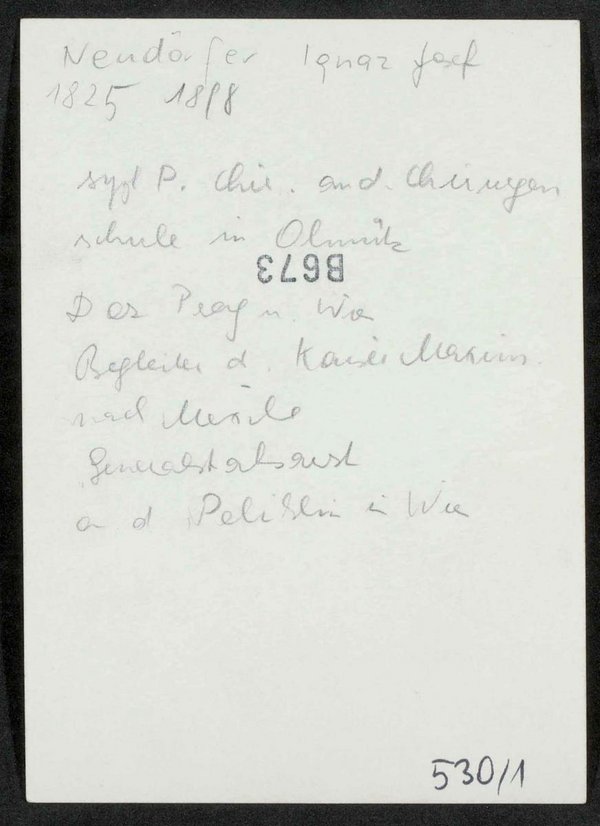 Neudörfer Ignaz Josef
1825 1898
suppl P. Chir. and. Chirurgen
schule in Olmütz
B673
Doz Prag u. Wien
Begleiter d. Kaiser Maxim.
nach Mexiko
Generalstabsarzt
an d Poliklin in Wien
530/1